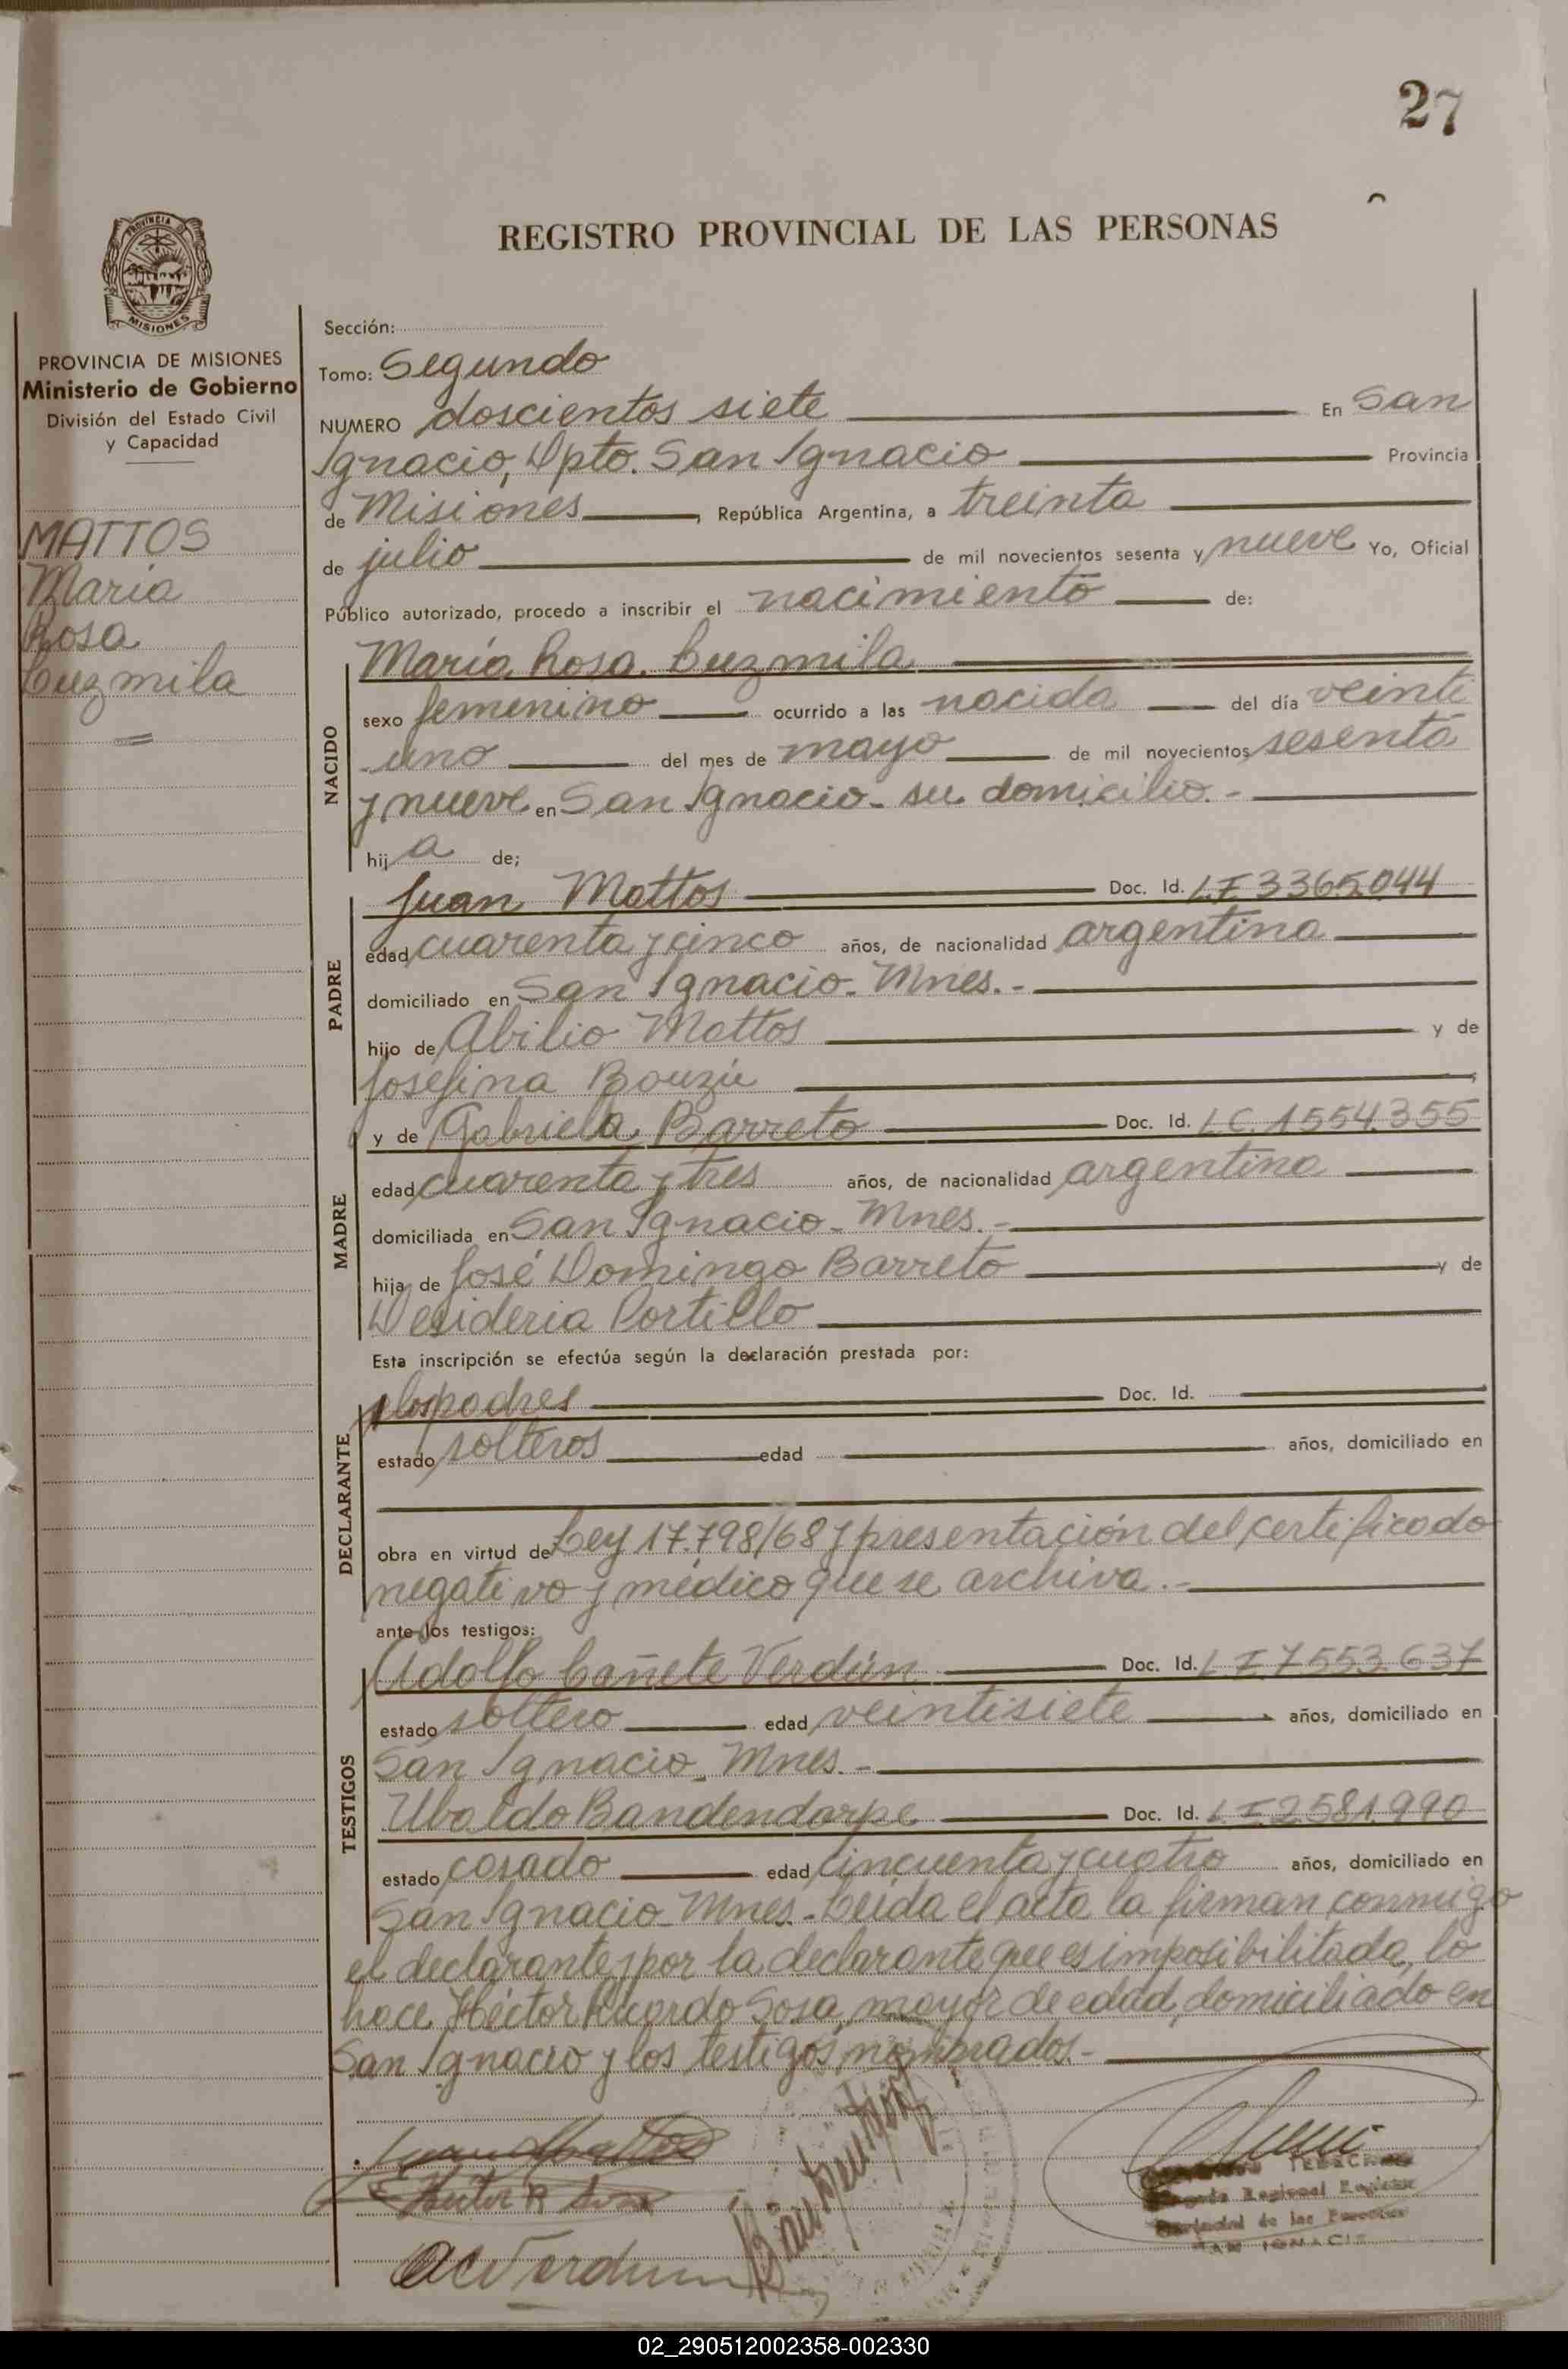 27
REGISTRO PROVINCIAL DE LAS PERSONAS
PROVINCIA
MISIONES
PROVINCIA DE MISIONES
Ministerio de Gobierno
División del Estado Civil
y Capacidad
MATTOS
María
Rosa
Luzmila
Sección:
Tomo: Segundo
NUMERO doscientos siete En San
Ignacio, Dpto. San Ignacio Provincia
de Misiones, República Argentina, a treinta
de julio de mil novecientos sesenta y nueve Yo, Oficial
Público autorizado, procedo a inscribir el nacimiento de:
NACIDO
María Rosa Luzmila
sexo femenino ocurrido a las nacida del día veinti
uno del mes de mayo de mil novecientos sesenta
y nueve en San Ignacio - su domicilio.-
hija de;
PADRE
Juan Mattos Doc. Id. L.E 3365.044
edad cuarenta y cinco años, de nacionalidad argentina
domiciliado en San Ignacio - Mnes.-
hijo de Abilio Mattos y de
Josefina Bouzú
MADRE
y de Gabriela Barreto Doc. Id. L.C. 1554.355
edad cuarenta y tres años, de nacionalidad argentina
domiciliada en San Ignacio - Mnes.-
hija de José Domingo Barreto y de
Desideria Portillo
Esta inscripción se efectúa según la declaración prestada por:
DECLARANTE
los padres Doc. Id.
estado solteros edad años, domiciliado en
obra en virtud de Ley 17.798/68 y presentación del certificado
negativo y médico que se archiva.-
ante los testigos:
TESTIGOS
Adolfo Cañete Verdún Doc. Id. L E 7553.637
estado soltero edad veintisiete años, domiciliado en
San Ignacio - Mnes.-
Ubaldo Bandendorpe Doc. Id. L.E 2581.990
estado casado edad cincuenta y cuatro años, domiciliado en
San Ignacio - Mnes.- Leída el acta la firman conmigo
el declarante y por la declarante que es imposibilitada, lo
hace Héctor Ricardo Sosa, mayor de edad, domiciliado en
San Ignacio y los testigos nombrados.-
Juan Mattos
Hector R Sosa
AC Verdun
Provincial de las Personas
SAN IGNACIO
02_290512002358-002330